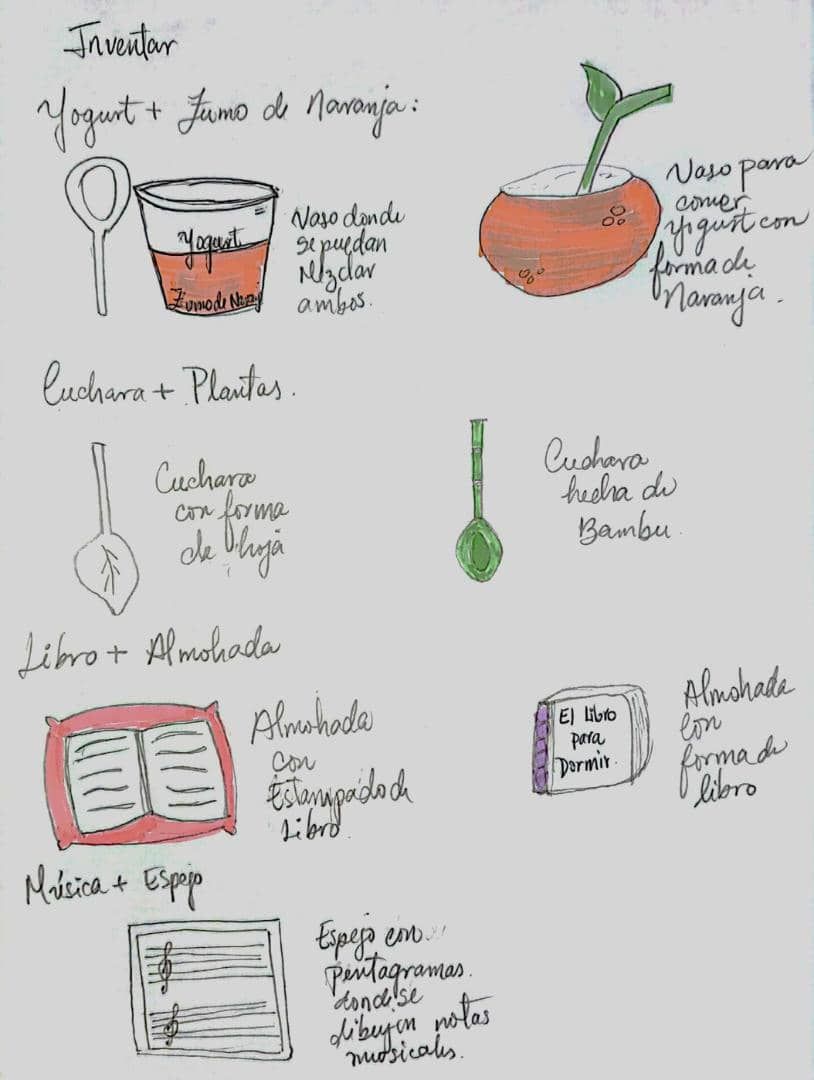 Inventar
Yogurt + Zumo de Naranja:
Yogurt
Zumo de Naraj
Vaso donde
se puedan
Mezclar
ambos.
Vaso para
comer
Yogurt con
forma de
Naranja.
Cuchara + Plantas.
Cuchara
con forma
de hoja
Cuchara
hecha de
Bambu.
Libro + Almohada
Almohada
con
Estampado de
Libro.
El Libro
para
Dormir.
Almohada
con
forma de
libro
Música + Espejo
Espejo con
pentagramas.
donde se
dibujen notas
musicales.